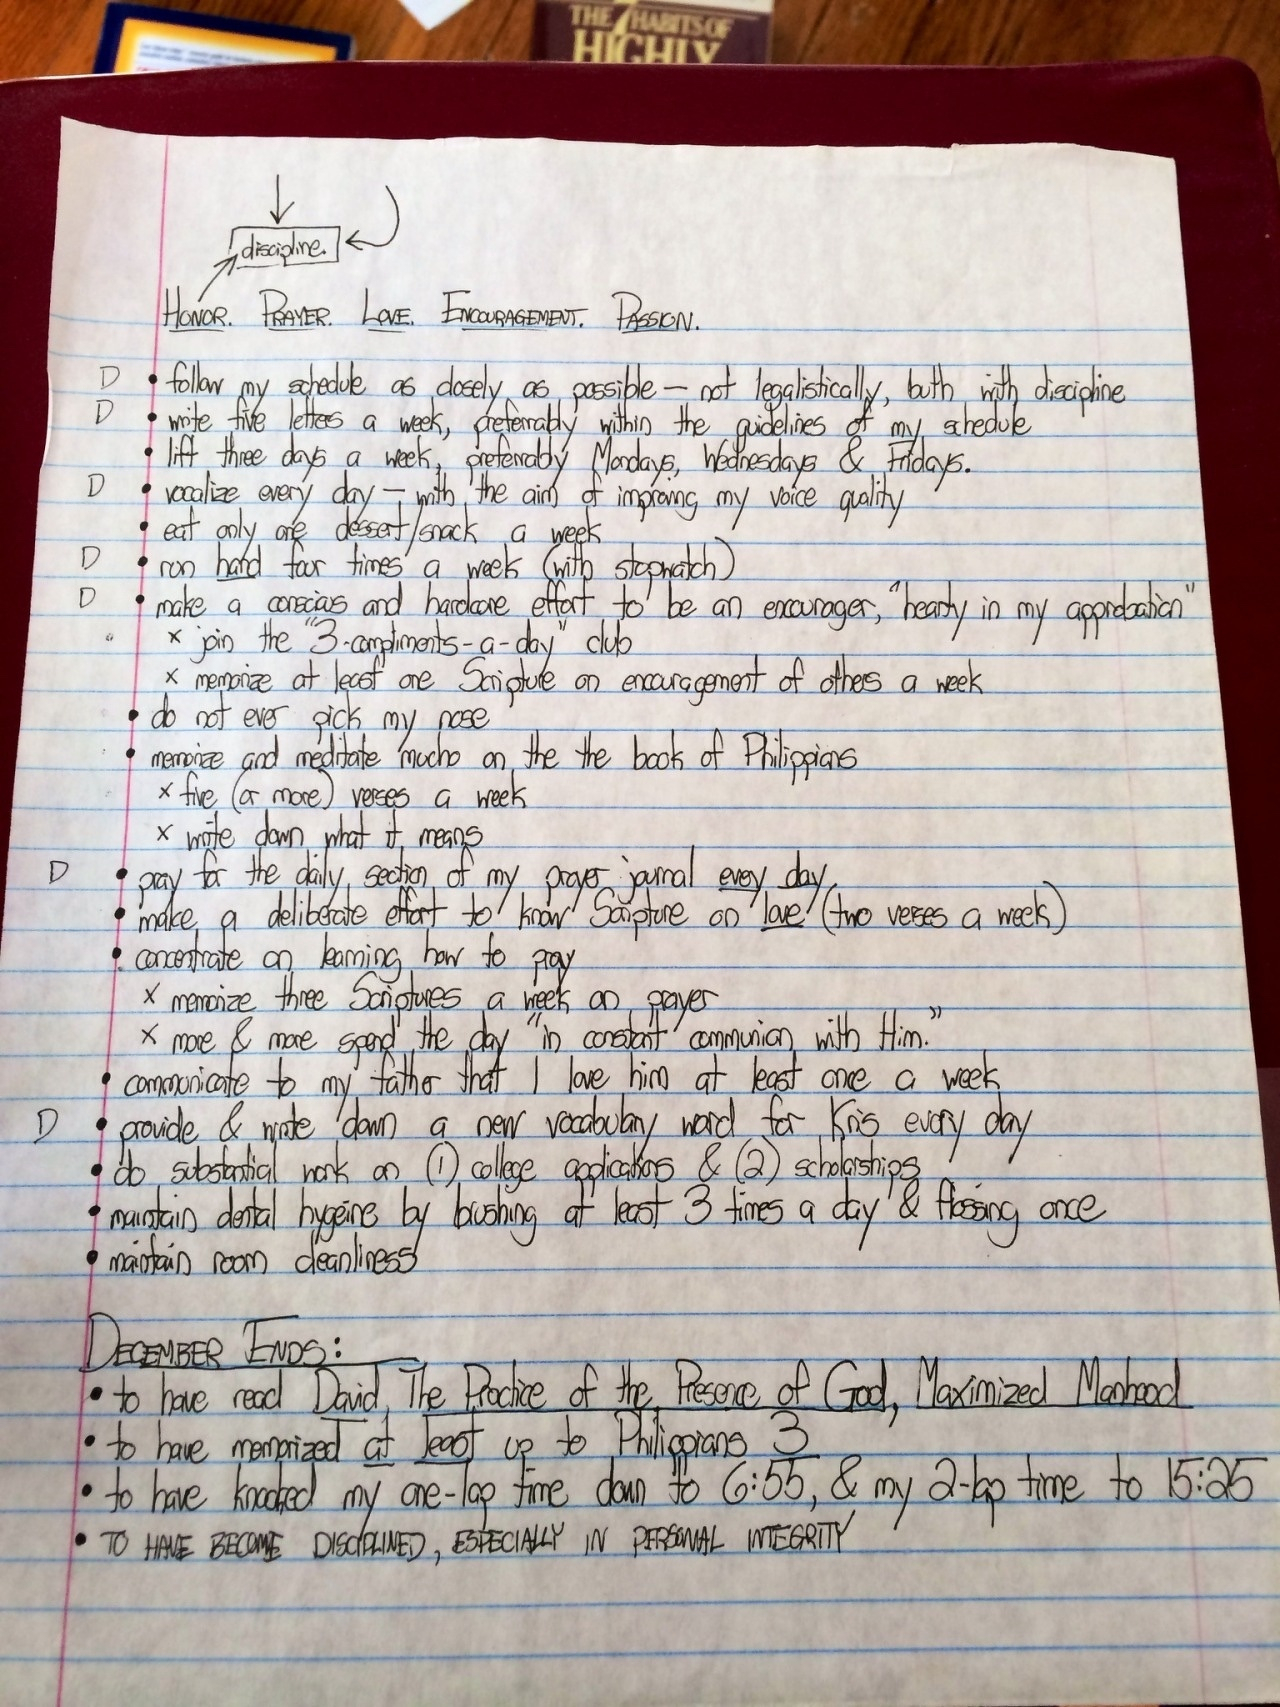 THE 7 HABITS OF
HIGHLY
discipline.
HONOR. PRAYER. LOVE. ENCOURAGEMENT. PASSION.
D • follow my schedule as closely as possible — not legalistically, both with discipline
D • write five letters a week, preferrably within the guidelines of my schedule
• lift three days a week, preferrably Mondays, Wednesdays & Fridays.
D • vocalize every day — with the aim of improving my voice quality
• eat only one dessert/snack a week
D • run hard four times a week (with stopwatch)
D • make a conscious and hardcore effort to be an encourager, "hearty in my approbation"
x join the "3-compliments-a-day" club
x memorize at least one Scripture on encouragement of others a week
• do not ever pick my nose
• memorize and meditate mucho on the the book of Philippians
x five (or more) verses a week
x write down what it means
D • pray for the daily section of my prayer journal every day
• make a deliberate effort to know Scripture on love (two verses a week)
• concentrate on learning how to pray
x memorize three Scriptures a week on prayer
x more & more spend the day "in constant communion with Him."
• communicate to my father that I love him at least once a week
D • provide & write down a new vocabulary word for Kris every day
• do substantial work on (1) college applications & (2) scholarships
• maintain dental hygeine by brushing at least 3 times a day & flossing once
• maintain room cleanliness
DECEMBER ENDS:
• to have read David, The Practice of the Presence of God, Maximized Manhood
• to have memorized at least up to Philippians 3
• to have knocked my one-lap time down to 6:55, & my 2-lap time to 15:25
• TO HAVE BECOME DISCIPLINED, ESPECIALLY IN PERSONAL INTEGRITY